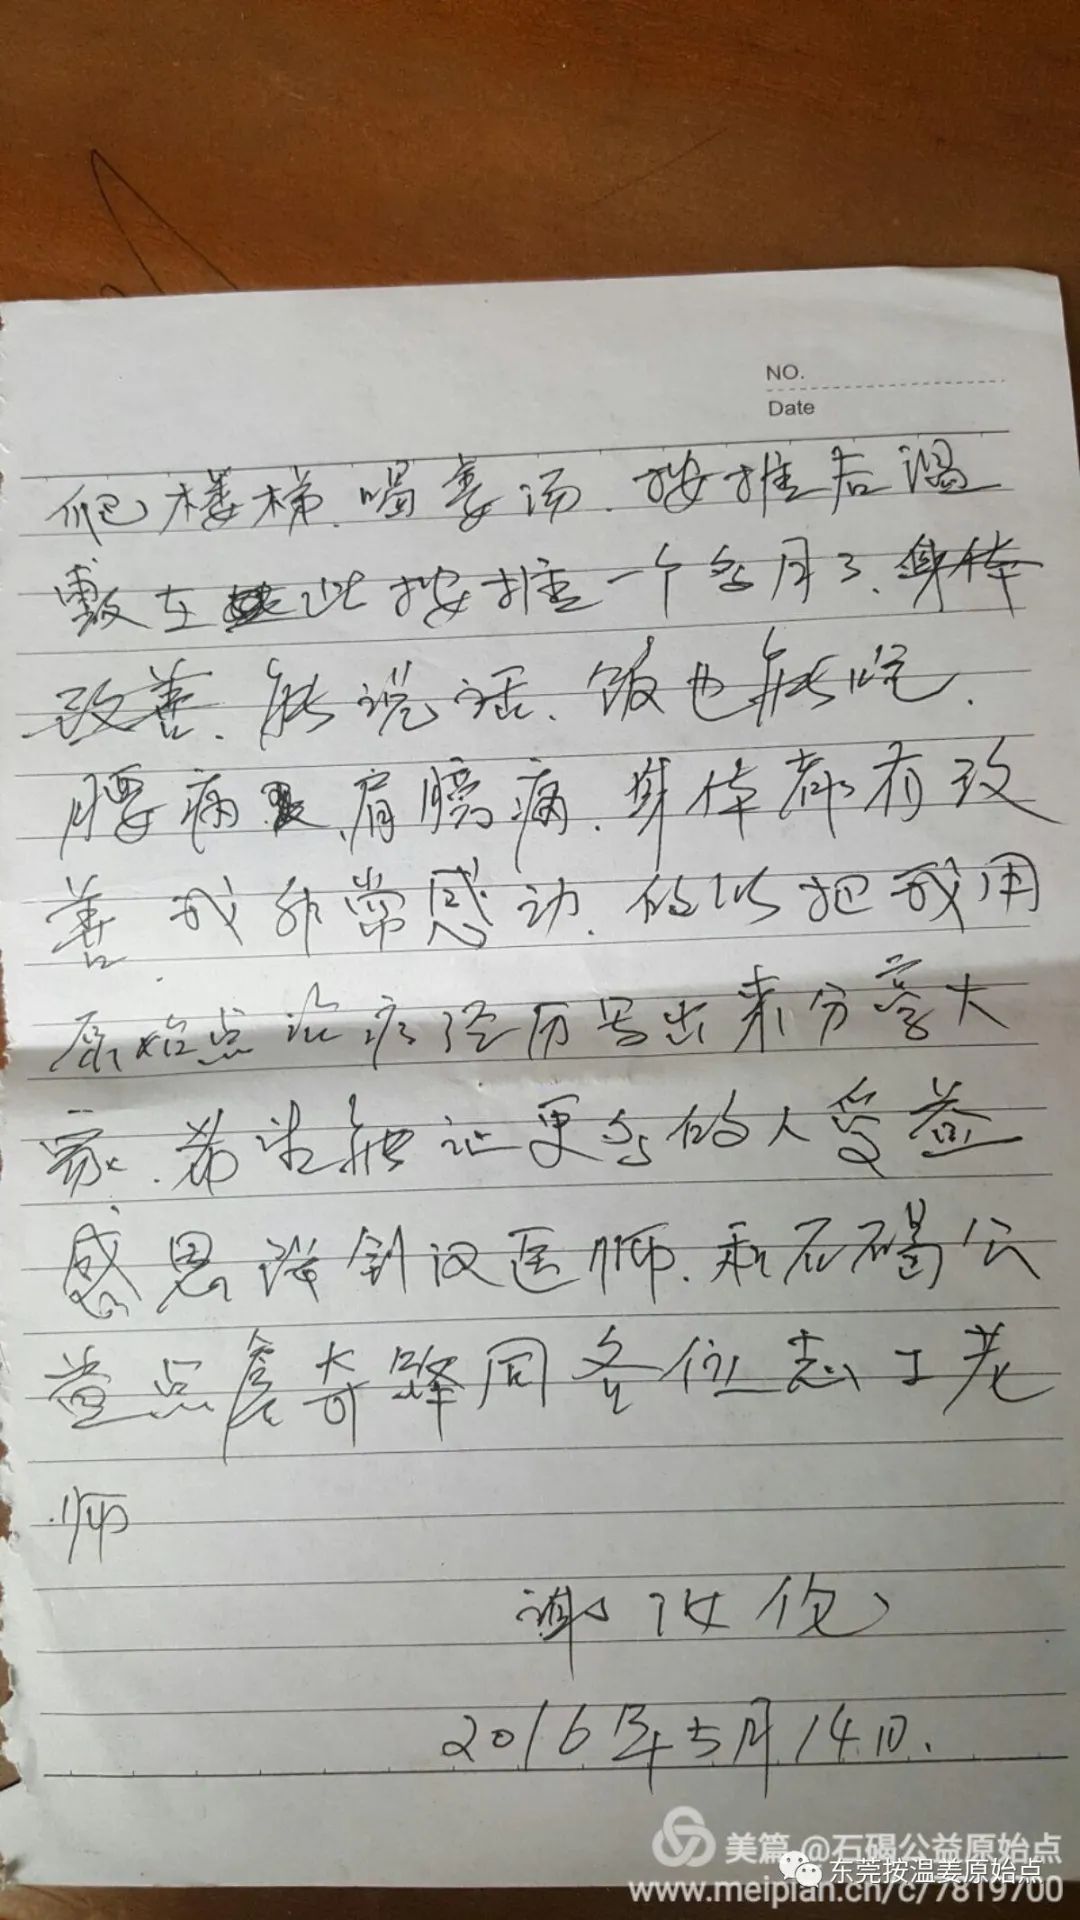 NO.
Date
爬楼梯.喝姜汤.按推后温
敷在此按推一个多月了.身体
改善.能说话.饭也能吃.
腰痛.肩膀痛.身体都有改
善.我非常感动.的以把我用
原始点治病经历写出来分享大
家.希望能让更多的人受益
感恩张钊汉医师.和石碣公
益点詹奇峰同各位志工老
师
谢
2016年5月14日.
美篇 @石碣公益原始点
东莞按温姜原始点
www.meipian.cn/c/7819700